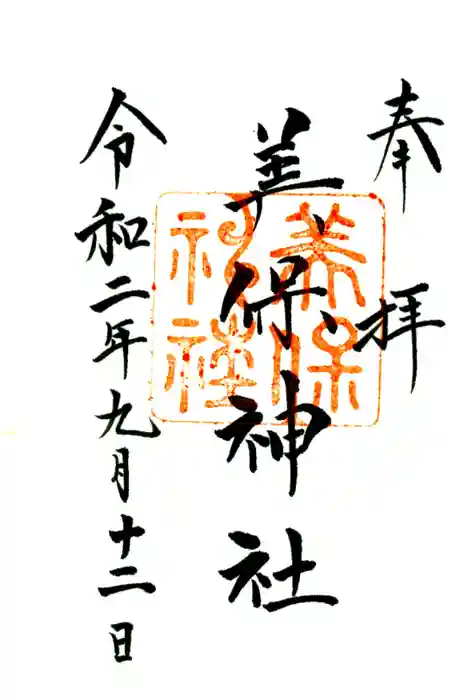 奉拝
美保神社
美保
神社
令和二年九月十二日